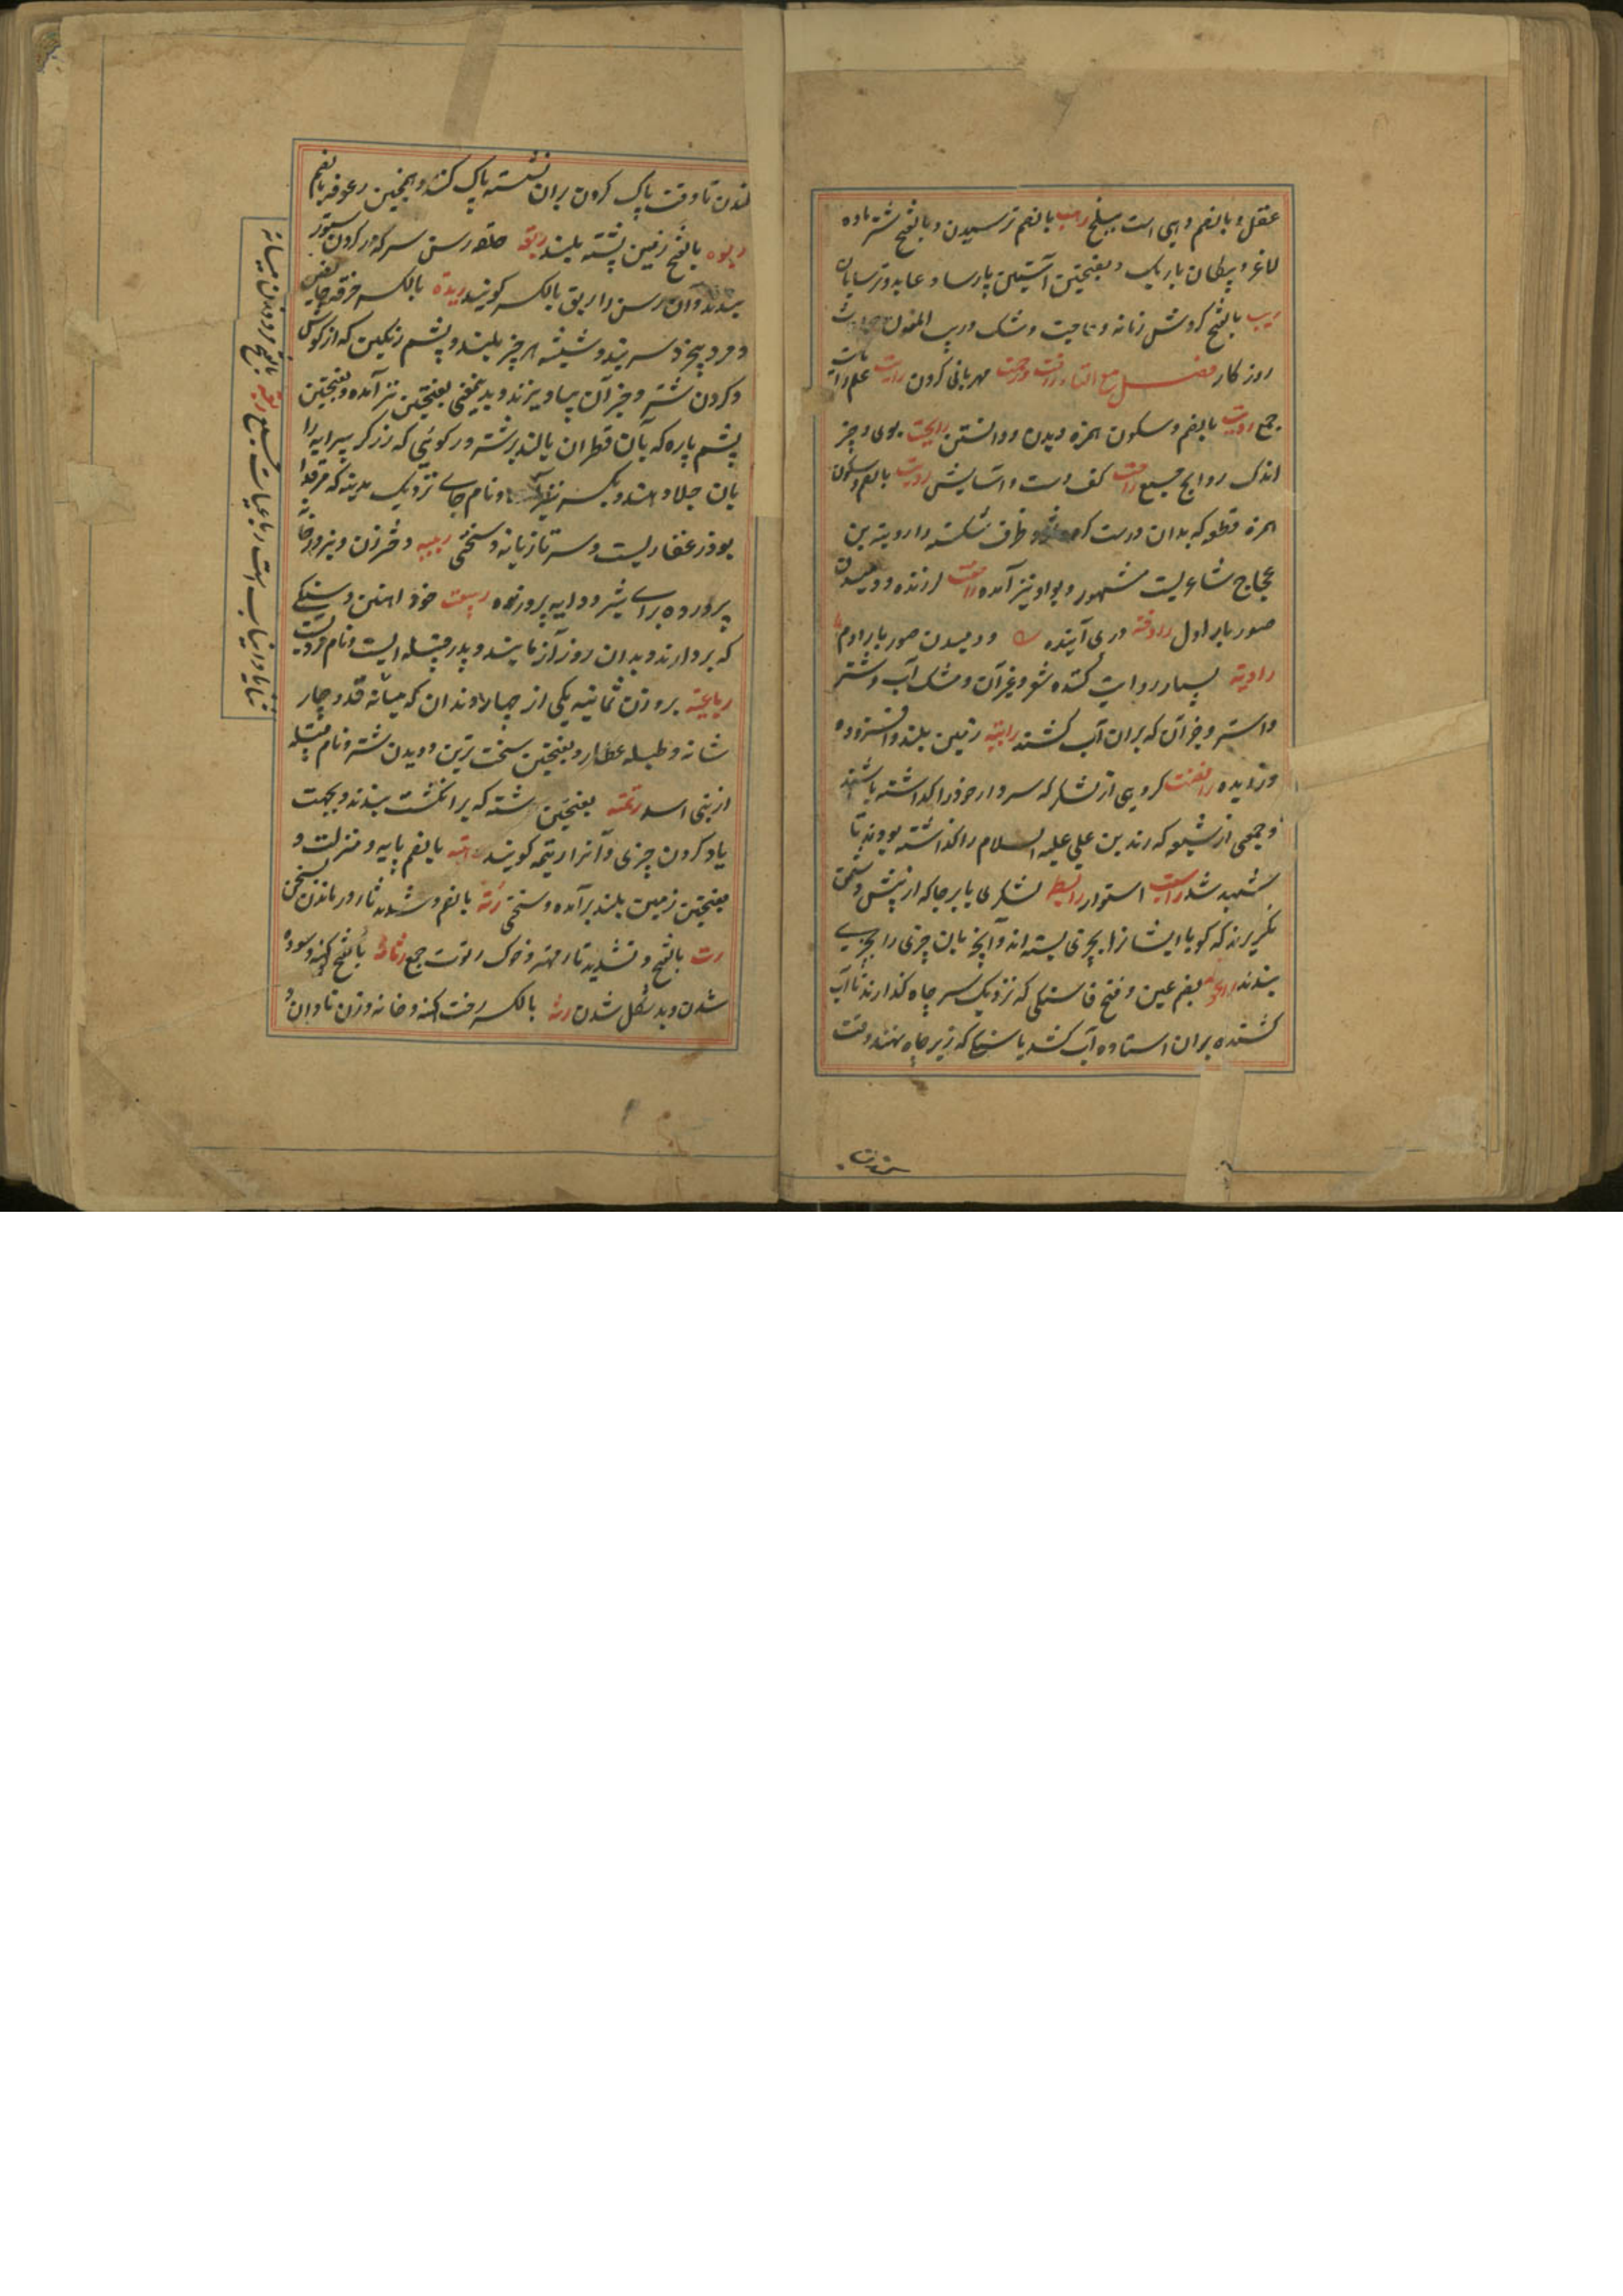 عقل و بالضم دهی است ببلخ رهب بالضم ترسیدن و بالفتح شتر ماده
لاغر و پیکان باریک و بفتحتین آستین پارسا و عابد و ترسایان
ریب بالفتح کردش زمانه و حاجت و شک و ریب المنون حوادث
روزکار فصل مع التاء رافت ورحمت مهربانی کردن رایت علم رایات
جمع رویت بالضم و سکون همزه دیدن و دانستن رایحت بوی و چیز
اندک روایح جمیع راحت کف دست و آسایش روبت بالضم و سکون
همزه قطعه که بدان درست کرده شود ظرف شکسته را روبه بن
عجاج شاعریست مشهور و بواو نیز آمده راجفت لرزنده و دمیدن
صور بار اول رادفه در پی آینده و دمیدن صور بار دوم
راویه بسیار روایت کننده شعر و غیر آن و مشک آب و شتر
و استر و خر آن که بران آب کشند رابیه زمین بلند و افزوده
و زاییده رافضت کروهی از لشکر که سردار خود را کذاشته باشند
و جمعی از شیعه که زید بن علی علیه السلام را کذاشته بودند تا
شهید شد راست استوار رابطه لشکری پا برجا که از پیش دشمن
نکریزند که کویا ایشانرا بچیزی بسته اند و آنچه بان چیزی را بچیزی
بندند راعوفه بضم عین و فتح فا سنکی که نزدیک سر چاه کذارند تا آب
کشنده بران استاده آب کشد یا سنکی که زیر چاه نهند وقت
کندن تا وقت پاک کردن بران نشسته پاک کند و همچنین رعوفه بالضم
ربوه بالفتح زمین پشته بلند ربقه حلقه رسن سر که در کردن ستور
بندند و آن رسن را ربق بالکسر کویند ربذة بالکسر خرقه حایض
و مرد بیخرد سر بند و شیشه هر چیز پلید و پشم رنکین که از کوش
و کردن شتر و جز آن بیاویزند و بدینمعنی بفتحتین نیز آمده و بفتحتین
پشم پاره که بآن قطران بالند بر شتر و رکوئی که زرکر پیرایه را
بان جلا دهند و بکسر نیز آمده و نام جای نزدیک مدینه که مرقد ابا
بوذر غفاریست و سر تازیانه و سختی ربیبه دختر زن و بز در خانه
پرورده برای شیر و دایه پرورنده ربیعت خود آهنین و سنکی
که بردارند و بدان زور آزمایند و پدر قبیله ایست و نام مردیست
رباعیة بر وزن ثمانیه یکی از چهار دندان که میانه ربعة میانه قد و چهار
شانه و طبله عطار و بفتحتین سخت ترین دویدن شتر و نام قبیله
از بنی اسد رتمه بفتحتین رشته که بر انکشت بندند و بجهت
یاد کردن چیزی و آنرا رتیمه کویند رتبه بالضم پایه و منزلت و
بفتحتین زمین بلند برآمده و سختی رته بالضم و تشدید تا در ماندن سخن
رت بالفتح و تشدید تا مهتر و خوک رتوت جمع رثاثة بالفتح کهنه و سوده
شدن و بد شکل شدن رثه بالکسر رخت کهنه و خانه و زن نادان و